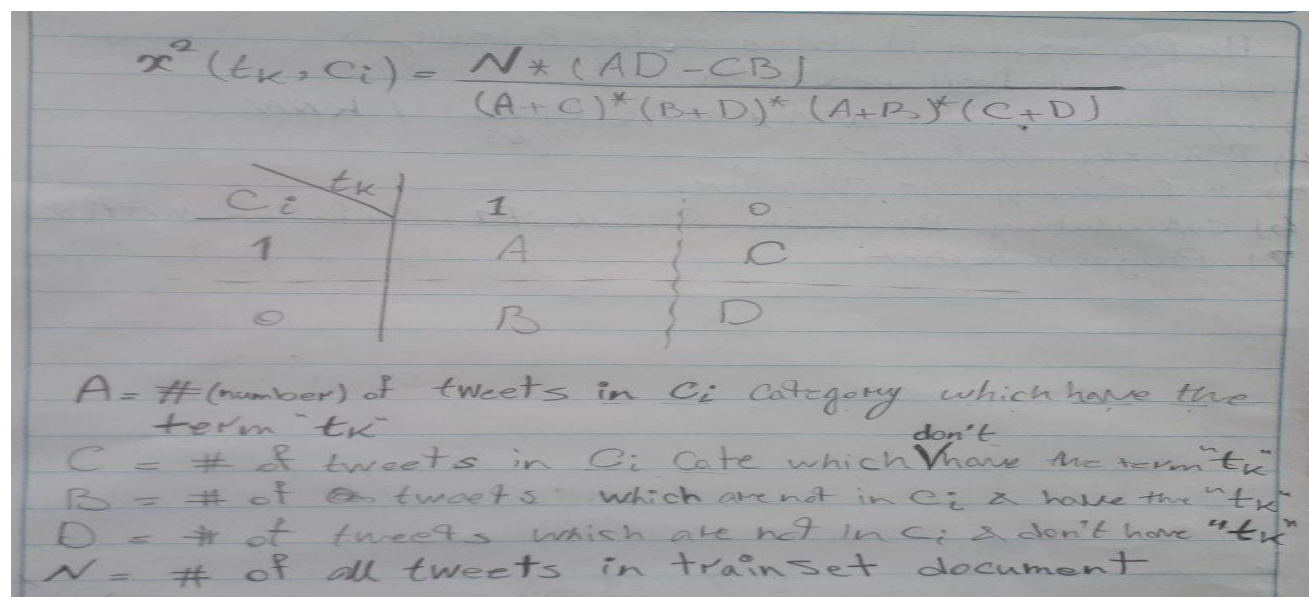 x²(tk, Ci) = N * (AD - CB)
(A+C)*(B+D)*(A+B)*(C+D)
Ci tk 1 0
1 A C
0 B D
A = #(number) of tweets in Ci Category which have the
term "tk"
don't
C = # of tweets in Ci Cate which have the term "tk"
B = # of tweets which are not in Ci & have the "tk"
D = # of tweets which are not in Ci & don't have "tk"
N = # of all tweets in train set document